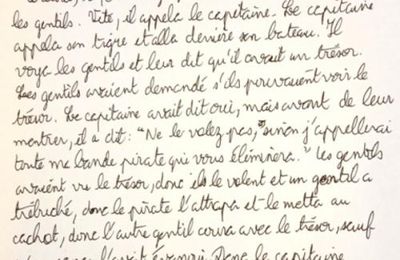 les gentils. Vite, il appela le capitaine. Le capitaine
appela son tigre et alla derière son bateau. Il
voya les gentils et leur dit qu'il avait un trésor.
Les gentils avaient demandé s'ils pouvaient voir le
trésor. Le capitaine avait dit oui, mais avant de leur
montrer, il a dit: "Ne le volez pas, sinon j'appellerai
toute ma bande pirate qui vous éliminera." Les gentils
avaient vu le trésor, donc ils le volent et un gentil a
trébuché, donc le pirate l'attrapa et le metta au
cachot, donc l'autre gentil courva avec le trésor, sauf
l'avait évanoui. Donc le capitaine